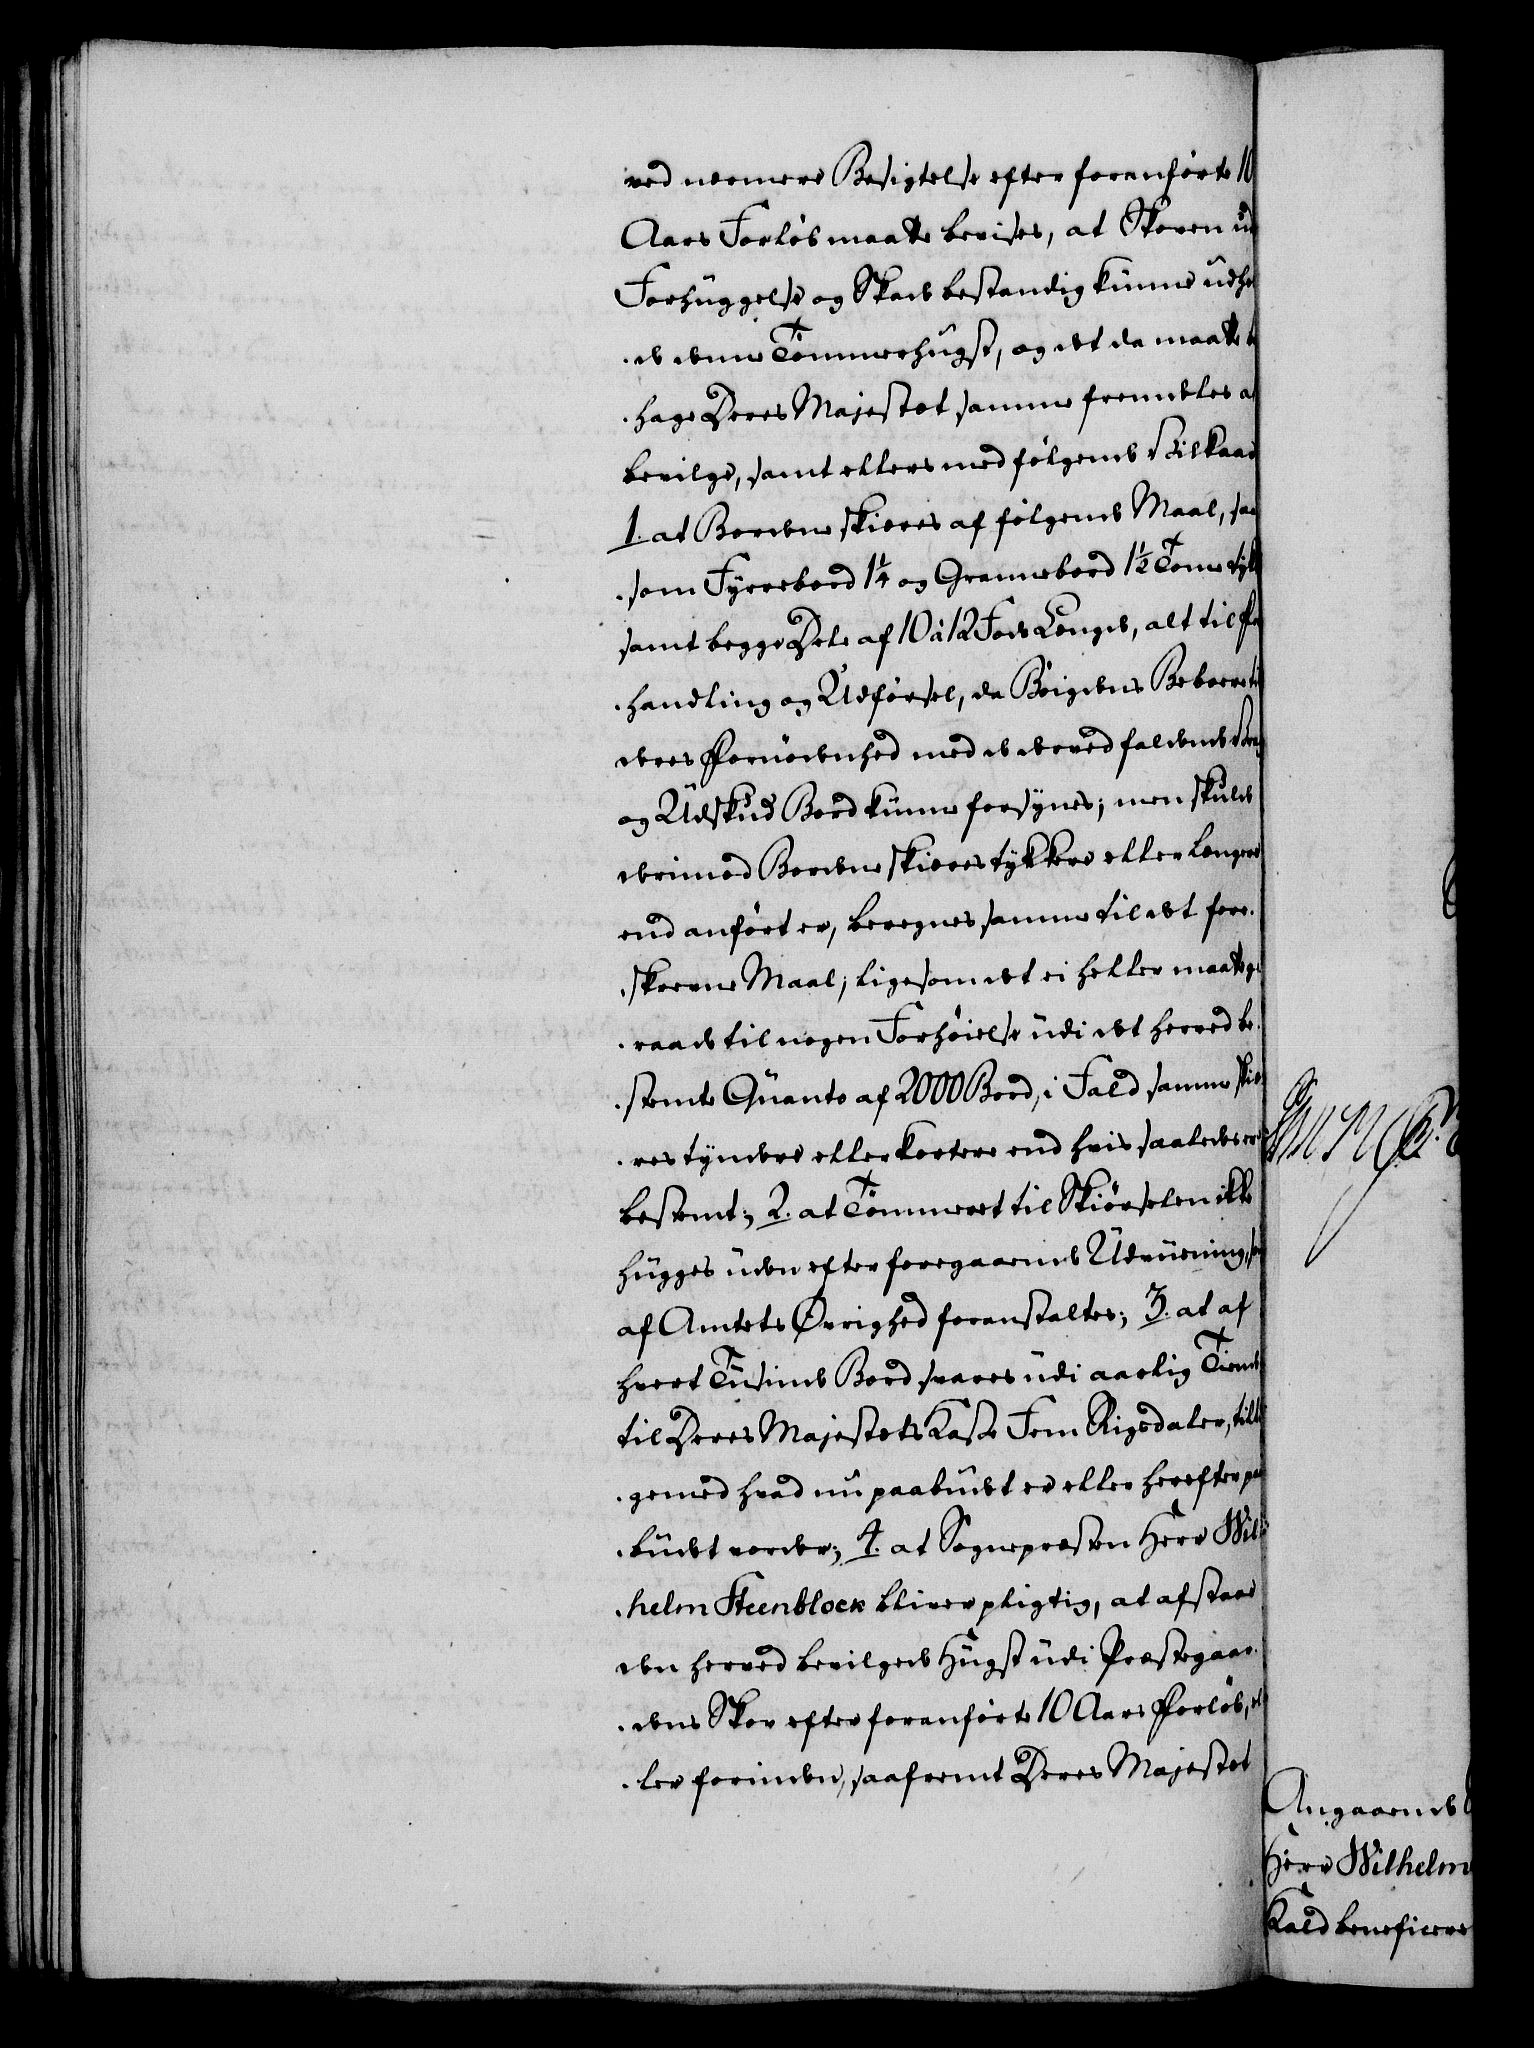 ved nærmere Besigtelse efter foranførte 10
Aars Forløb maatte bevises, at Skoven ud
Forhuggelse og Skade bestandig kunne udhol
de denne Tømmerhugst, og det da maatte be
hage Deres Majestæt samme fremdeles at
bevilge, samt ellers med følgende Vilkaar
1. at Bordene skiæres af følgende Maal, saa
som Fyrrebord 1¼ og Grannebord 1½ Tomme tyk
samt begge Dele af 10 à 12 Fods Længde, alt til For
handling og Udførsel, da Bøigdens Beboere til
deres Fornødenhed med de derved faldende Vrag
og Udskud Bord kunne forsynes; men skulde
derimod Bordene skiæres tykkere eller længere
end anført er, beregnes samme til det fore-
skrevne Maal, ligesom det ei heller maatte ge
raade til nogen Forhøielse udi det herved be-
stemte Quanto af 2000 Bord, i Fald samme skiæ
res tyndere eller kortere end hvis saaledes er
bestemt; 2. at Tømmeret til Skiørselen ikke
hugges uden efter foregaaende Udviisning, som
af Amtets Øvrighed foranstaltes; 3. at af
hvert Tusinde Bord svares udi aarlig Tiende
til Deres Majestæts Kasse Fem Rigsdaler, tilli
gemed hvad nu paabudet er eller herefter paa
budet vorder; 4. at Sognepræsten Herr Wil
helm Steenblock bliver pligtig, at afstaae
den herved bevilgede Hugst udi Præstegaar-
dens Skov efter foranførte 10 Aars Forløb, el
ler forinden, saafremt Deres Majestæt
Angaaende
Herr Wilhelm
Kald beneficere